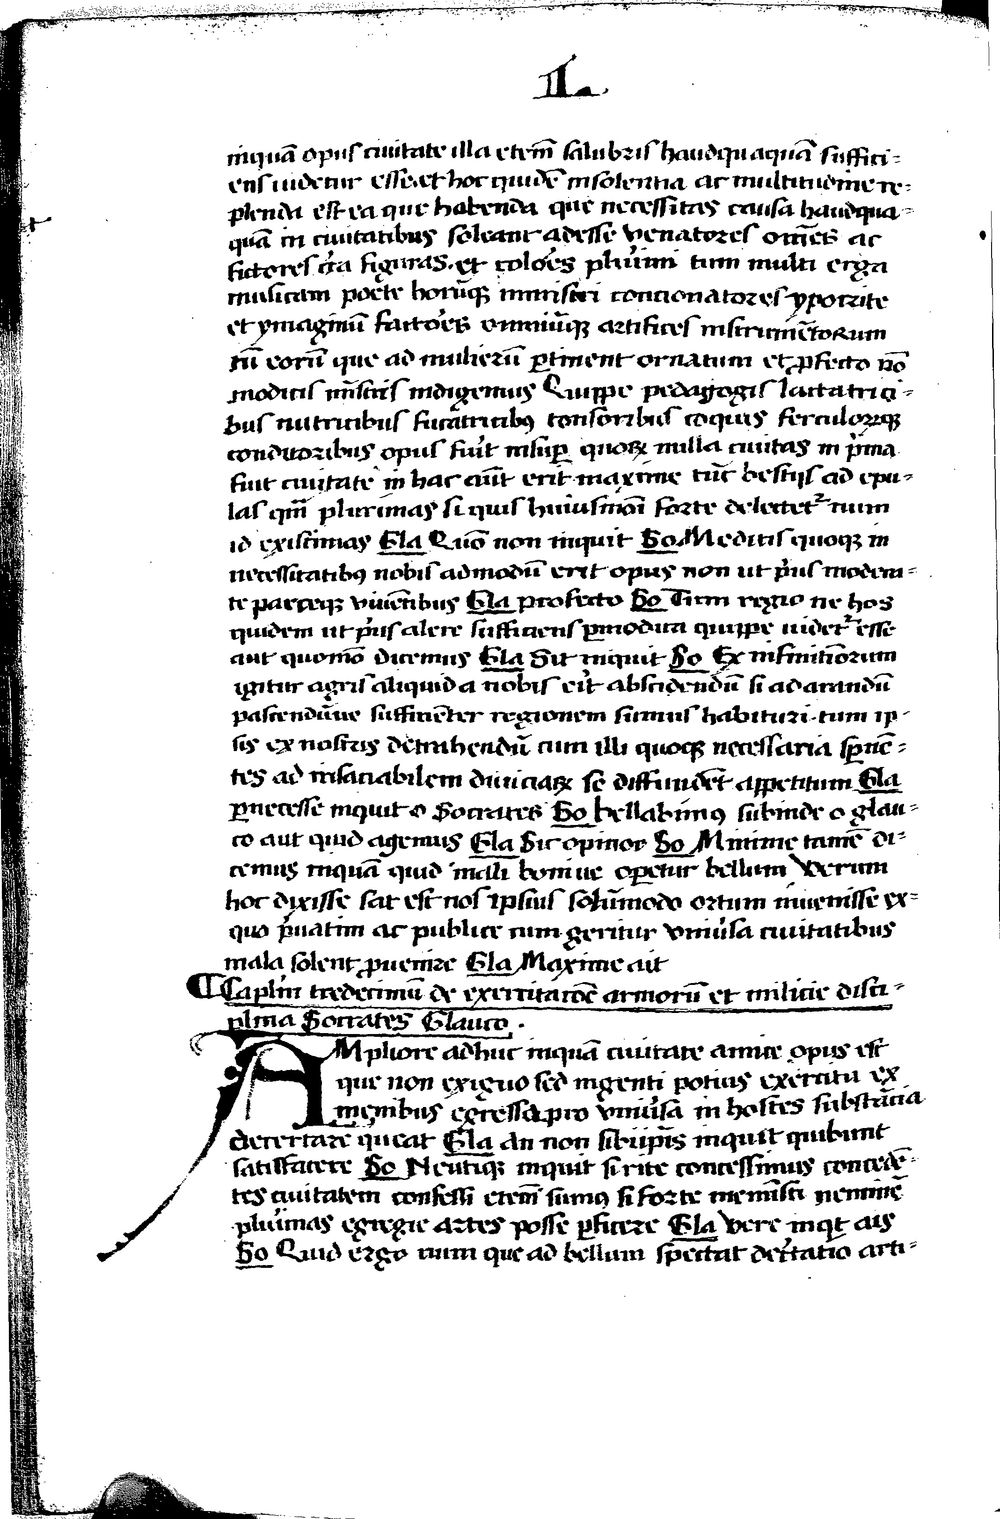 II.
inquā opus ciuitate illa etem̄ salubris haudquaquā suffici=
ens uidetur esse. et hoc quidē insolentia ac multitudine re=
plenda est ea que habenda que necessitas causa haudqua=
quā in ciuitatibus soleant adesse venatores om̄es ac
fictores c̄ra figuras. et coloēs plurimi tum multi erga
musicam poete horūqꝫ ministri concionatores ypocrite
et ymaginū factoēs omniūqꝫ artifices instrumētorum
tū eorū que ad mulierū ꝑtinent ornatum et ꝓfecto nō
modicis mīstris indigemus Quippe pedagogis lactatrici=
bus nutricibus fucatricibꝫ tonsoribus coquis ferculorꝫqꝫ
conditoribus opus fuīt insuꝑ quoꝝ nulla ciuitas in p̄ma
fuit ciuitate in hac aūt erit maxime tūc bestijs ad epu=
las qm̄ plurimas si quis huiusmōi forte delectet᷑ num
id existimas Gla Quō non inquit So Medicis quoqꝫ in
necessitatibꝫ nobis admodū erit opus non ut p̄us modera=
te parceqꝫ viuētibus Gla profecto So Tum regio ne hos
quidem ut p̄us alere sufficiens ꝑmodica quippe uidet᷑ esse
aut quomō dicemus Gla Sic inquit So Ex infinitiorum
igitur agris aliquid a nobis eīt abscidendū si ad arandū
pascendūue sufficiēter regionem sumus habituri. tum ip=
sis ex nostris detrahendū cum illi quoqꝫ necessaria sꝑnē=
tes ad insaciabilem diuiciaꝝ se diffundēt appetitum Gla
ꝑnecesse inquit o Socrates So bellabimꝫ subinde o glau=
co aut quid agemus Gla Sic opinor So Minime tamē di=
cemus inquā quid mali boni ue oꝑetur bellum Verum
hoc dixisse sat est nos ipsius solūmodo ortum inuenisse ex=
quo p̄uatim ac publice cum geritur vniūsa ciuitatibus
mala solent ꝓuenire Gla Maxime ait
Caplm̄ tredecimū de exercitacōe armorū et milicie disci=
plina Socrates Glauco.
AMpliore adhuc inquā ciuitate amice opus est
que non exiguo sed ingenti potius exercitu ex
menibus egressa pro vniūsa in hostes substācia
decertare queat Gla an non sibiip̄is inquit quibunt
satisfacere So Neutiqꝫ inquit si rite concessimus concedē=
tes ciuitatem confessi etem̄ sumꝫ si forte memīsti neminē
pluīmas egregie artes posse ꝑficere Gla Vere inqt ais
So Quid ergo num que ad bellum spectat dec̄tatio arti=